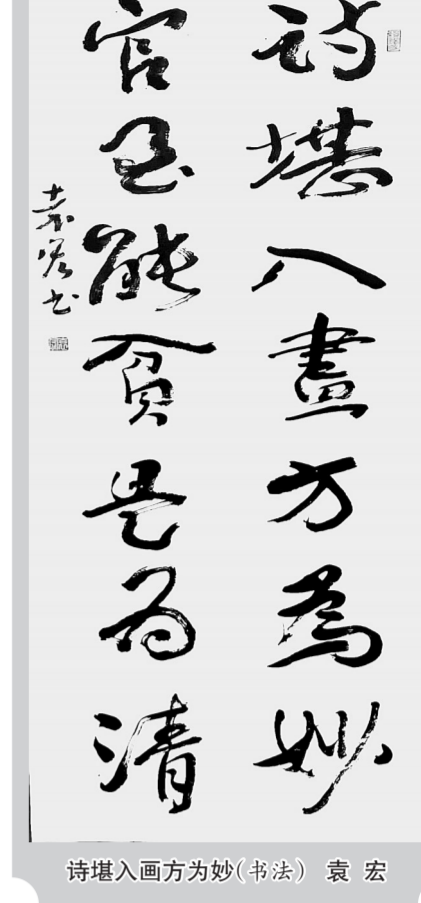 诗堪入畫方為妙
官能貧是为清
袁宏书
诗堪入画方为妙(书法) 袁 宏